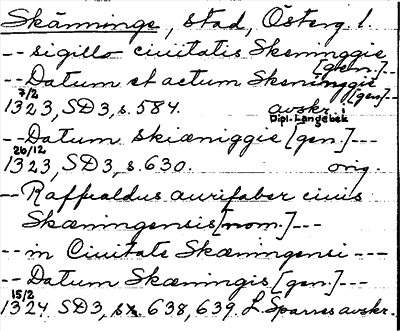 Skänninge, stad, Österg l.
-- sigillo ciuitatis Skeninggie [gen.]--
-- Datum et actum Skeninggie [gen]--
7/2
1323, SD3, s. 584. avskr. i Dipl. Langebek
-- Datum skiæniggie [gen.]---
26/12
1323, SD3, s. 630. orig.
-- Raffualdus aurifaber ciuis
Skæningensis [nom.]---
-- in Ciuitate Skæningensi ---
-- Datum Skæningis [gen.]---
15/2
1324 SD3, ss. 638, 639 L. Sparres avskr.